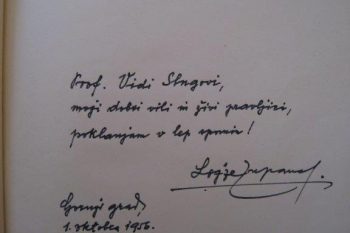 Prof. Vidi Slugovi,
moji dobri vili in živi pravljici,
poklanjam v lep spomin!
Lojze Zupanc.
Gornji grad,
1. oktobra 1956.